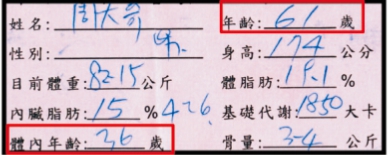 姓名:周大哥 年齡:61歲
性別: 男. 身高:174公分
目前體重:82.15公斤 體脂肪:19.1%
內臟脂肪:15%426 基礎代謝:1850大卡
體內年齡:36歲 骨量:3.4公斤